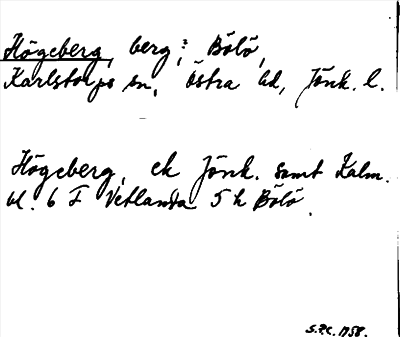 Högeberg, berg, Bölö,
Karlstorps sn, Östra hd, Jönk. l.
Högeberg, ek Jönk. samt Kalm.
bl. 6 F Vetlanda 5 h Bölö.
1958.